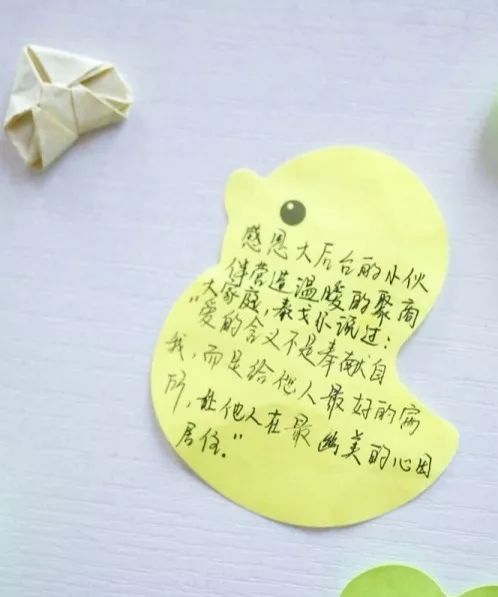 感恩大后台的小伙
伴营造温暖的聚商
大家庭,泰戈尔说过:
"爱的含义不是奉献自
我,而是给他人最好的
所,让他人在最幽美的心田
居住。"